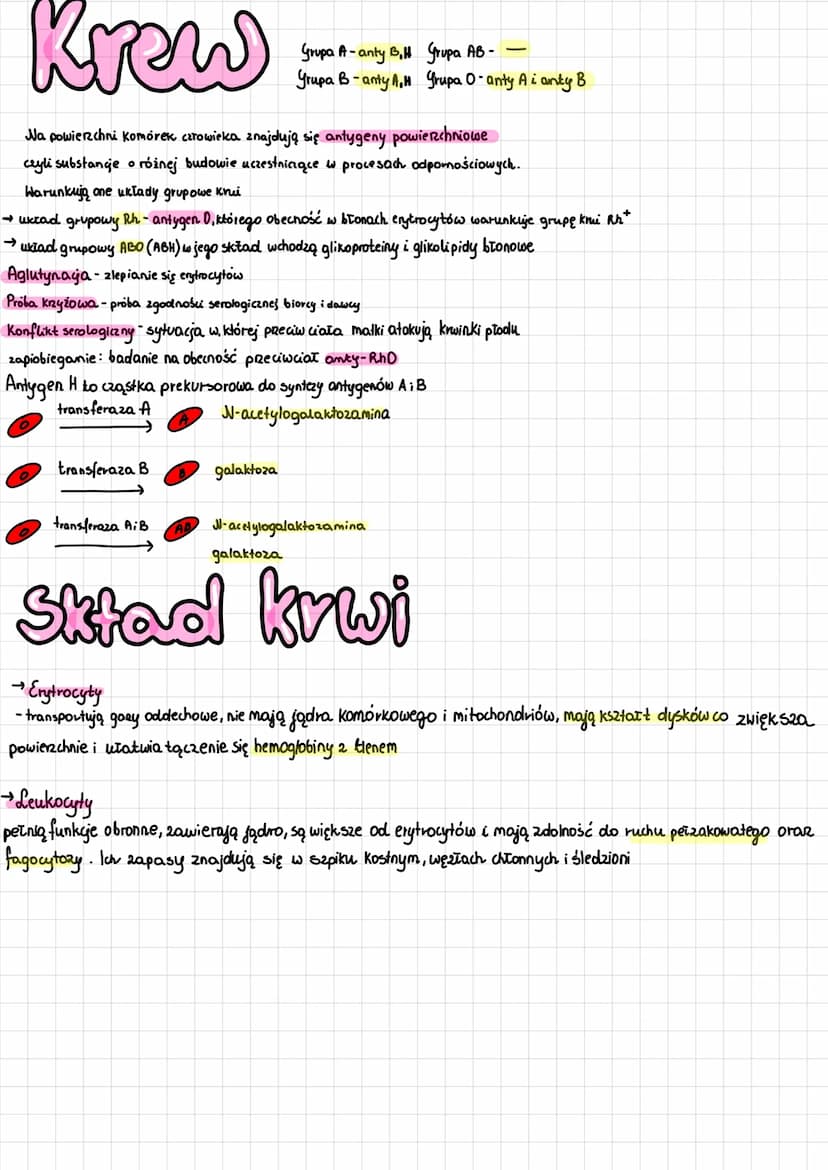 Krew
Grupa A - anty B, H Grupa AB - —
Grupa B - anty A, H Grupa O - anty A i anty B
Na powierzchni komórek człowieka znajdują się antygeny powierzchniowe
czyli substancje o różnej budowie uczestniczące w procesach odpornościowych.
Warunkują one układy grupowe krwi
→ układ grupowy Rh - antygen D, którego obecność w błonach erytrocytów warunkuje grupę krwi Rh⁺
→ układ grupowy ABO (ABH) w jego skład wchodzą glikoproteiny i glikolipidy błonowe
Aglutynacja - zlepianie się erytrocytów
Próba krzyżowa - próba zgodności serologicznej biorcy i dawcy
Konflikt serologiczny - sytuacja w, której przeciwciała matki atakują krwinki płodu
zapobieganie: badanie na obecność przeciwciał anty-RhD
Antygen H to cząstka prekursorowa do syntezy antygenów A i B
O transferaza A → A N-acetylogalaktozamina
O transferaza B → B galaktoza
O transferaza A i B → AB N-acetylogalaktozamina
galaktoza
Skład krwi
→ Erytrocyty
- transportują gazy oddechowe, nie mają jądra komórkowego i mitochondriów, mają kształt dysków co zwiększa
powierzchnie i ułatwia łączenie się hemoglobiny z tlenem
→ Leukocyty
pełnią funkcje obronne, zawierają jądro, są większe od erytrocytów i mają zdolność do ruchu pełzakowatego oraz
fagocytozy. Ich zapasy znajdują się w szpiku kostnym, węzłach chłonnych i śledzioni